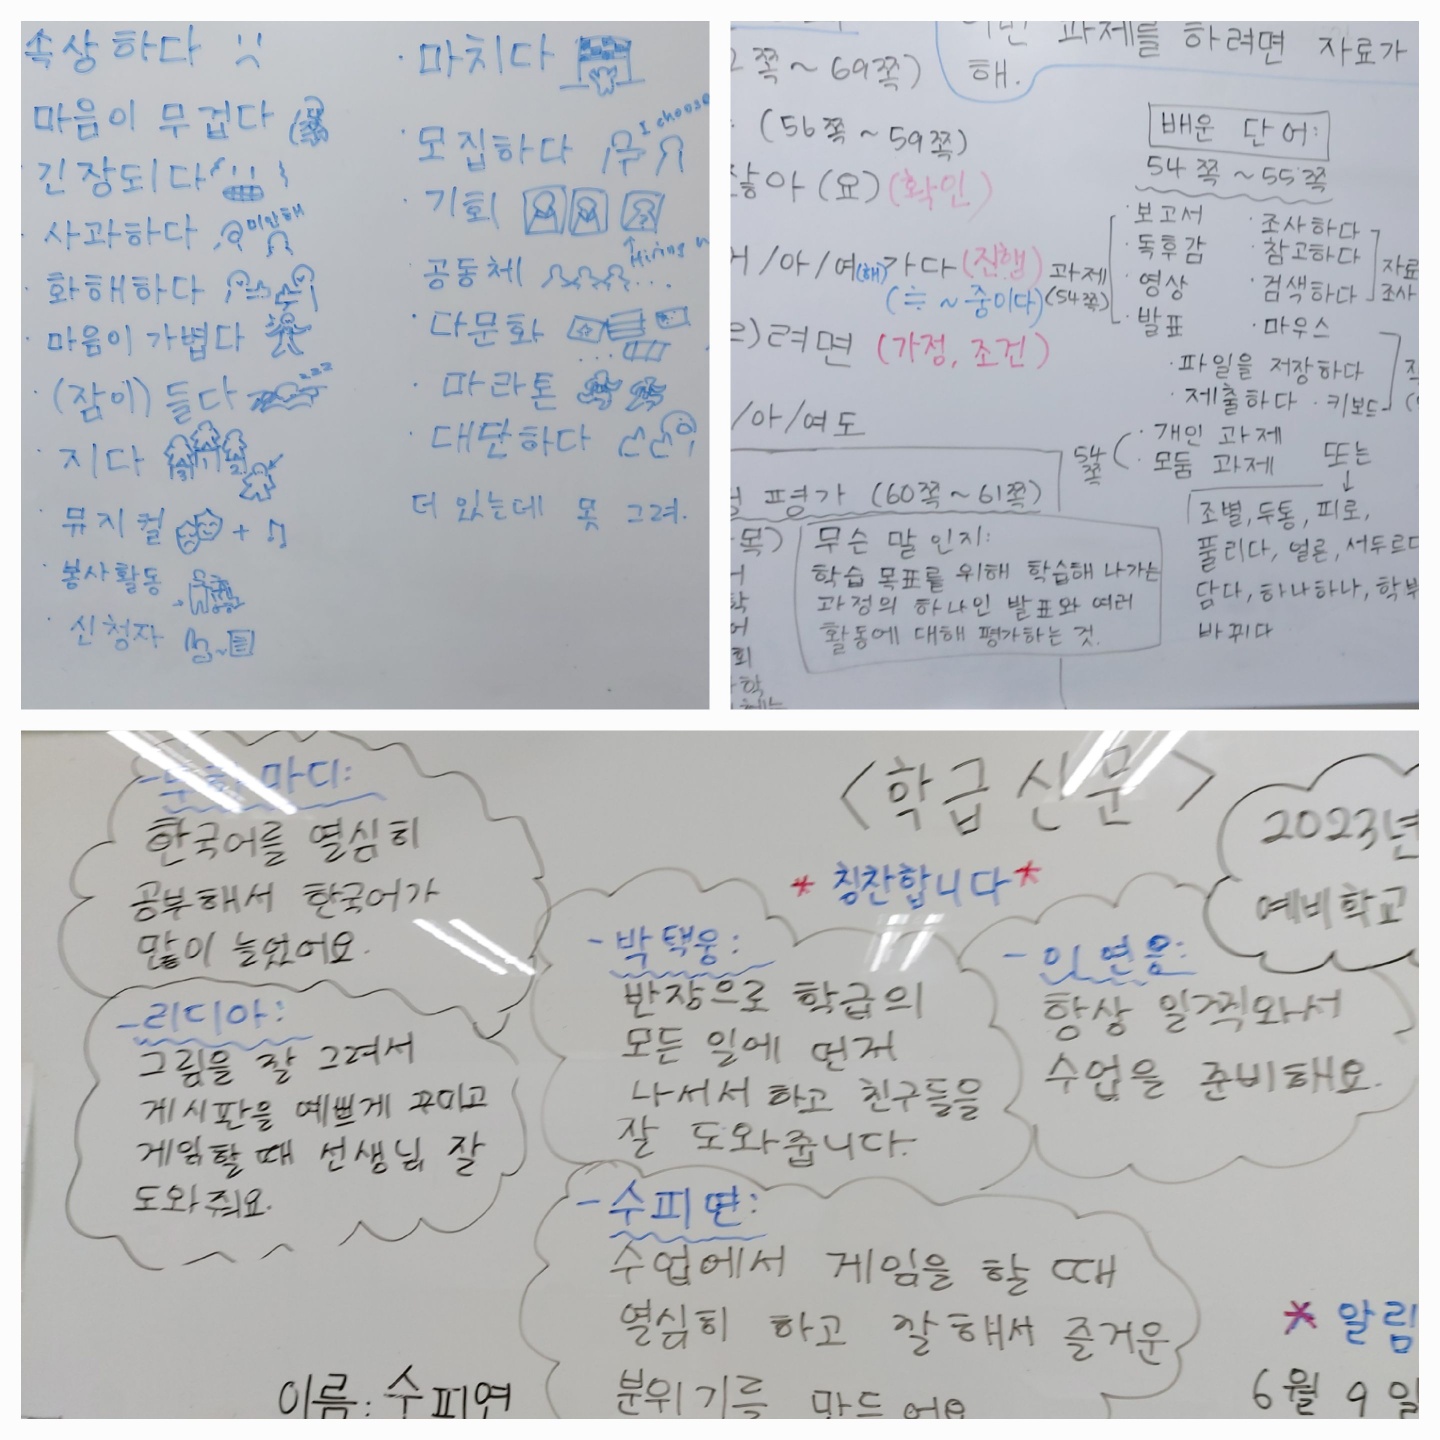 속상하다
마음이 무겁다
긴장되다
사과하다 미안해
화해하다
마음이 가볍다
(잠이) 들다 zzz
지다
뮤지컬 +
봉사활동
신청자
마치다
모집하다 I choose
기회
공동체 Hiring
다문화
마라톤
대단하다
더 있는데 못 그려.
과제를 하려면 자료가
해.
쪽 ~ 69쪽)
(56쪽 ~ 59쪽)
잖아 (요) (확인)
/아/여(해)가다 (진행)
(≒ ~ 중이다)
려면 (가정, 조건)
/아/여도
평가 (60쪽 ~ 61쪽)
무슨 말 인지:
학습 목표를 위해 학습해 나가는
과정의 하나인 발표와 여러
활동에 대해 평가하는 것.
배운 단어:
54쪽 ~ 55쪽
과제
(54쪽)
· 보고서
· 독후감
· 영상
· 발표
· 조사하다
· 참고하다
· 검색하다
자료
조사
· 마우스
· 파일을 저장하다
· 제출하다 · 키보드
54쪽
· 개인 과제
· 모둠 과제
또는
↓
조별, 두통, 피로,
풀리다, 얼른, 서두르다
담다, 하나하나,
바뀌다
<학급 신문>
* 칭찬합니다 *
2023년
예비학교
마디:
한국어를 열심히
공부해서 한국어가
많이 늘었어요.
- 리디아:
그림을 잘 그려서
게시판을 예쁘게 꾸미고
게임할 때 선생님 잘
도와줘요.
- 박택웅:
반장으로 학급의
모든 일에 먼저
나서서 하고 친구들을
잘 도와줍니다.
항상 일찍와서
수업을 준비해요.
- 수피연:
수업에서 게임을 할 때
열심히 하고 잘해서 즐거운
분위기를 만드어요
이름: 수피연
* 알림
6월 9일